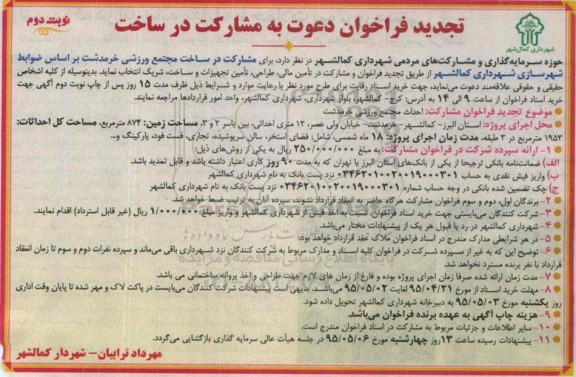 نوبت دوم
تجدید فراخوان دعوت به مشارکت در ساخت
شهرداری کمال‌شهر
حوزه سرمایه‌گذاری و مشارکت‌های مردمی شهرداری کمالشهر در نظر دارد، برای مشارکت در ساخت مجتمع ورزشی خرمدشت بر اساس ضوابط
شهرسازی شهرداری کمالشهر از طریق تجدید فراخوان و مشارکت در تأمین مالی، طراحی، تأمین تجهیزات و ساخت، شریک انتخاب نماید. بدینوسیله از کلیه اشخاص
حقیقی و حقوقی علاقمند دعوت می‌نماید، جهت خرید اسناد رقابت برای طرح مورد نظر با رعایت موارد و شرایط ذیل ظرف مدت ۱۵ روز پس از چاپ نوبت دوم آگهی جهت
خرید اسناد فراخوان از ساعت ۹ الی ۱۴ به آدرس: کرج- کمالشهر، بلوار شهرداری، شهرداری کمالشهر، واحد امور قراردادها مراجعه نمایند.
موضوع تجدید فراخوان مشارکت: احداث مجتمع ورزشی خرمدشت
محل اجرای پروژه: استان البرز- کمالشهر- خرمدشت- خیابان ولی عصر، ۱۲ متری احداثی، بین یاسر ۲ و ۳، مساحت زمین: ۸۷۴ مترمربع، مساحت کل احداثات:
۱۹۵۳ مترمربع در ۳ طبقه، مدت زمان اجرای پروژه: ۱۸ ماه شمسی، شامل: فضای استخر، سالن سرپوشیده، تجاری، فست فود، پارکینگ و...
۱- ارائه سپرده شرکت در فراخوان مشارکت: به مبلغ ۲۵۰/۰۰۰/۰۰۰ ریال به یکی از روش‌های ذیل:
الف) ضمانت‌نامه بانکی ترجیحا از یکی از بانک‌های استان البرز یا تهران که به مدت ۹۰ روز کاری اعتبار داشته باشد و قابل تمدید باشد.
ب) واریز فیش نقدی به حساب ۰۳۴۶۲۰۱۰۰۲۰۰۱۹۰۰۰۳۰۱ نزد پست بانک به نام شهرداری کمالشهر
ج) چک تضمین شده بانکی در وجه حساب شماره ۰۳۴۶۲۰۱۰۰۲۰۰۱۹۰۰۰۳۰۱ نزد پست بانک به نام شهرداری کمالشهر
۲- برندگان اول، دوم و سوم فراخوان مشارکت هرگاه حاضر به انعقاد قرارداد نشوند سپرده آنان به ترتیب ضبط خواهد شد.
۳- شرکت کنندگان می‌بایستی جهت خرید اسناد فراخوان نسبت به اخذ فیش از شهرداری کمالشهر و واریز مبلغ ۱/۰۰۰/۰۰۰ ریال (غیر قابل استرداد) اقدام نمایند.
۴- شهرداری کمالشهر در رد یا قبول هر یک از پیشنهادات مختار می‌باشد.
۵- در هر شرایطی مدارک مندرج در اسناد فراخوان ملاک عقد قرارداد خواهد بود.
۶- توضیح این که به غیر از سپرده شرکت در فراخوان کلیه اسناد و مدارک مربوط به شرکت کنندگان نزد شهرداری باقی می‌ماند و سپرده نفرات دوم و سوم تا زمان انعقاد
قرارداد با نفر برنده مسترد نخواهد شد.
۷- مدت زمان ارائه شده صرفا زمان اجرای پروژه بوده و فارغ از زمان های لازم جهت طراحی و اخذ پروانه ساختمانی می باشد.
۸- مهلت خرید اسناد از مورخ ۹۵/۰۴/۲۱ لغایت ۹۵/۰۵/۰۲ می‌باشد. بدیهی است پیشنهادات شرکت کنندگان می‌بایست در پاکت لاک و مهر شده تا پایان وقت اداری
روز یکشنبه مورخ ۹۵/۰۵/۰۳ به دبیرخانه شهرداری کمالشهر تحویل داده شود.
۹- هزینه چاپ آگهی به عهده برنده فراخوان می‌باشد.
۱۰- سایر اطلاعات و جزئیات مربوط به مشارکت در اسناد فراخوان مندرج است.
۱۱- پیشنهادات رسیده ساعت ۱۳ روز چهارشنبه مورخ ۹۵/۰۵/۰۶ در جلسه هیأت عالی سرمایه گذاری بازگشایی می‌گردد.
مهرداد ترابیان- شهردار کمالشهر